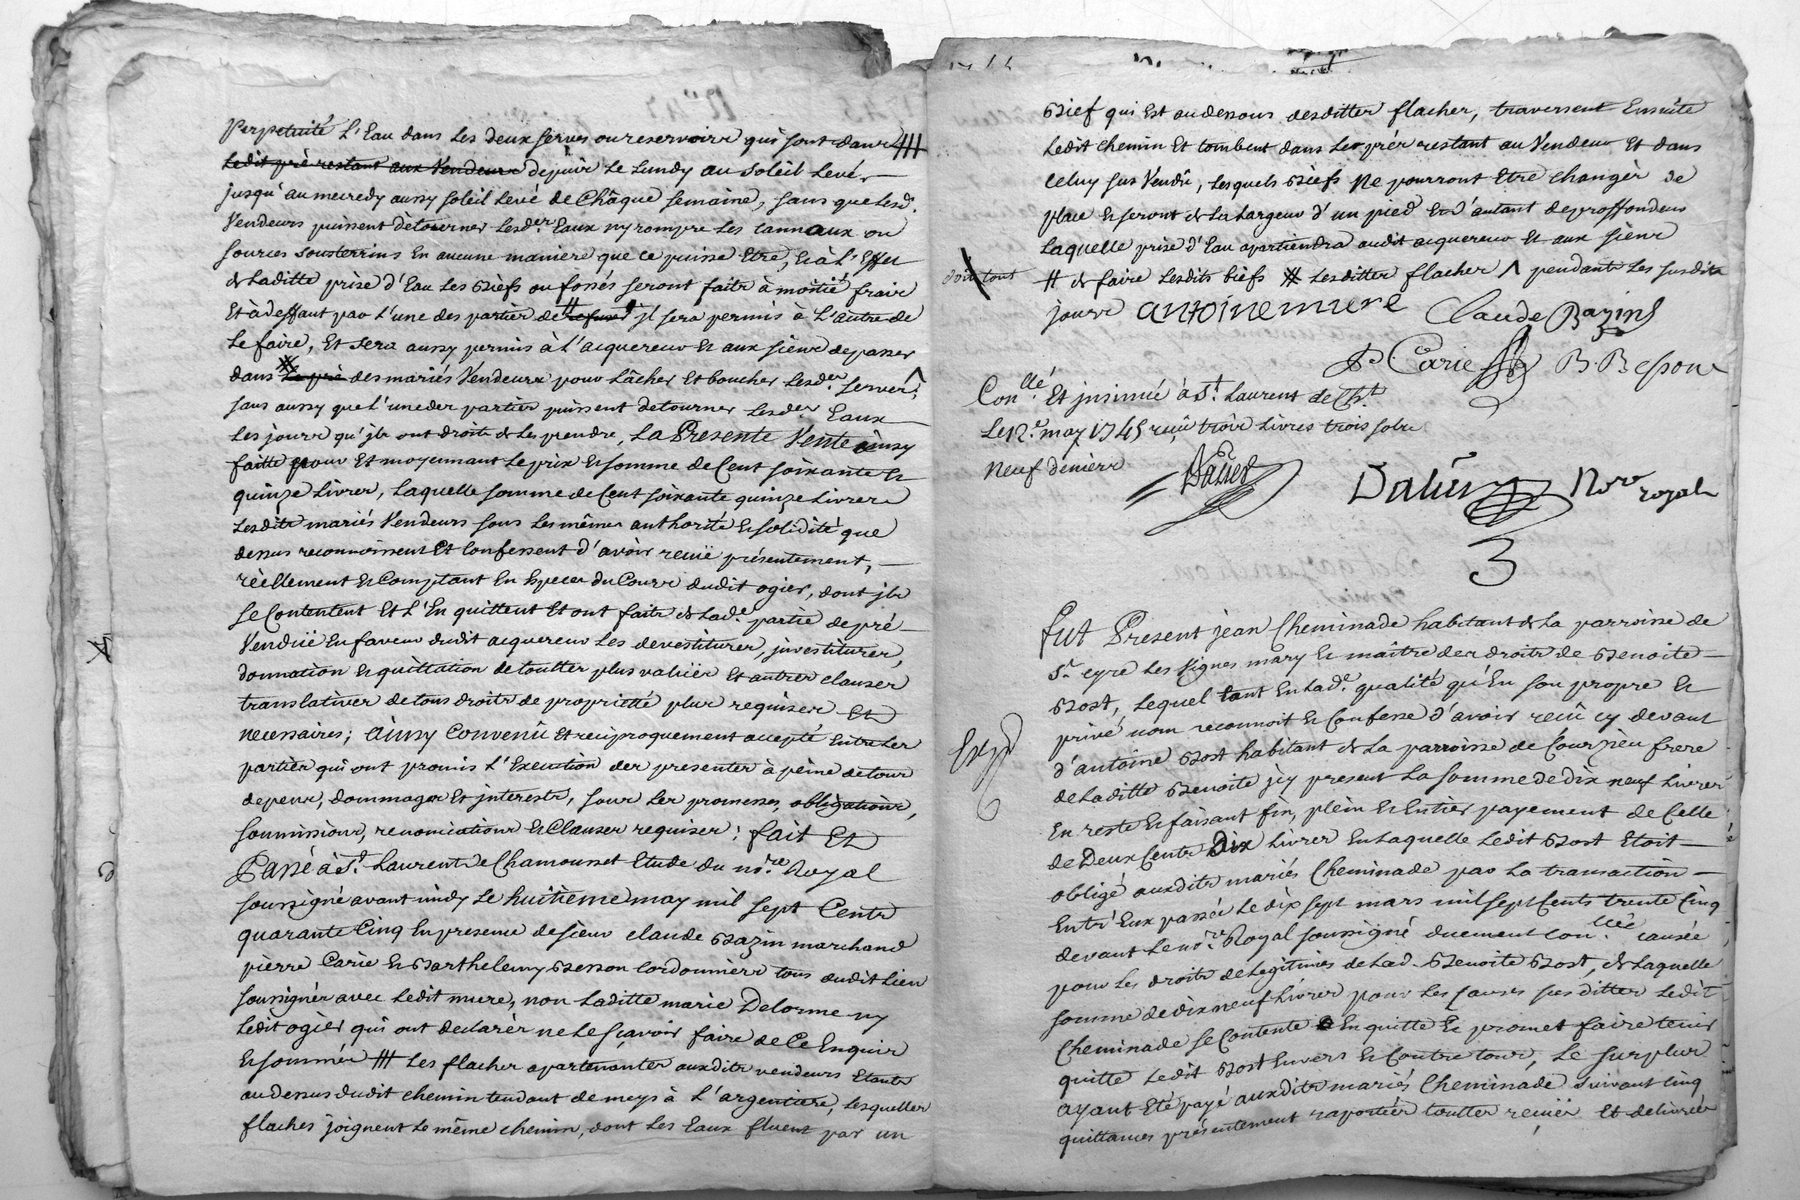 Perpetuité L'Eau dans Les deux serves ou reservoirs qui sont dans ⧣
Ledit pré restant aux Vendeurs depuis Le Lundy au soleil Levé
jusqu'au mecredy aussy soleil Levé de Châque semaine, sans que Lesd.
Vendeurs puissent dètourner Lesd.es Eaux ny rompre Les cannaux ou
sources sousterrins En aucune maniere que ce puisse Etre, Et à L'Effet
de Laditte prise d'Eau Les Biefs ou fossés seront faits à moitié frais
Et à deffaut par L'une des parties de refus jl sera permis à L'autre de
Le faire, Et sera aussy permis à L'acquereur Et aux siens de passer
dans Le pré des mariés Vendeurs pour Lâcher Et boucher Lesd.es serves
sans aussy que L'une des parties puissent detourner Lesd.es Eaux
Les jours qu'jls ont droits de Les prendre, La Presente Vente ainsy
faitte pour Et moyennant Le prix Et somme de Cent soixante Et
quinze Livres, Laquelle somme de Cent soixante quinze Livres
Lesdits mariés Vendeurs sous Les mêmes authorité Et solidité que
dessus reconnoissent Et Confessent d'avoir reçuë présentement,
réellement Et Comptant En Especes du Cours dudit ogier, dont jls
se Contentent Et L'En quittent Et ont faits de Lad.e partie de pré
Venduë En faveur dudit acquereur Les devestitures, jnvestitures,
donnation Et quittation de touttes plus valuës Et autres clauses
translatives de tous droits de proprietté plus requises Et
necessaires; ainsy Convenu Et reciproquement accepté Entre Les
parties qui ont promis L'Execution des presentes à peine de tous
depens, dommages Et jnterests, sous Les promesses, obligations,
soumissions, renonciations Et Clauses requises: fait Et
Passé à S.t Laurent de Chamousset Etude du no.re Royal
soussigné avant midy Le huitième may mil sept Cents
quarante Cinq En presence de sieur claude Bazin marchand
pierre Carie Et Barthelemy Besson Cordonniers tous dudit Lieu
soussignés avec Ledit mure, non Laditte marie Delorme ny
Ledit ogier qui ont declarés ne Le sçavoir faire de Ce Enquis
Et sommés ⧣ Les flaches apartenantes auxdits vendeurs Etants
au dessus dudit chemin tendant de meys à L'argentiere, Lesquelles
flaches joignent Le même chemin, dont Les Eaux fluent par un
Bief qui Est au dessous desdittes flaches, traversent Ensuite
Ledit chemin Et tombent dans Les prés restant au Vendeur Et dans
Celuy sus Vendû, Lesquels Biefs Ne pourront Etre changés de
place Et seront de La Largeur d'un pied Et d'autant de proffondeur
Laquelle prise d'Eau apartiendra audit acquereur Et aux siens
doit tout
# de faire Lesdits biefs ⁜ Lesdittes flaches ʌ pendants Les susdits
jours antoine mure Claude Bazin
P Carie B. Besson
Con.llé Et jnsinué à S.t Laurent de Ch.t
Le 12.e may 1745 reçû trois Livres trois sols
Neuf deniers
Nore royal
3
fut Present jean Cheminade habitant de La parroisse de
S.t eyre Les Vignes mary Et maître des droits de Benoite
Bost, Lequel tant En Lad.e qualité qu'En son propre Et
privé nom reconnoit Et Confesse d'avoir reçû cy devant
d'antoine Bost habitant de La parroisse de Courzieu frere
de Laditte Benoite jcy present La somme de dix neuf Livres
En reste Et faisant fin, plein Et Entier payement de Celle
de Deux Cents Dix Livres En Laquelle Ledit Bost Etoit
obligé auxdits mariés Cheminade par La transaction
Entr'Eux passée Le dix sept mars mil sept Cents trente Cinq
devant Le no.re Royal soussigné duement Con.llée causée
pour Les droits de Legitimes de Lad. Benoite Bost, de Laquelle
somme de dix neuf Livres pour Les Causes susdittes Ledit
Cheminade se Contente Et En quitte Et promet faire tenir
quitte Ledit Bost Envers Et Contre tous, Le surplus
ayant Eté payé auxdits mariés Cheminade suivant Cinq
quittances présentement raportées touttes reçuës Et delivrées